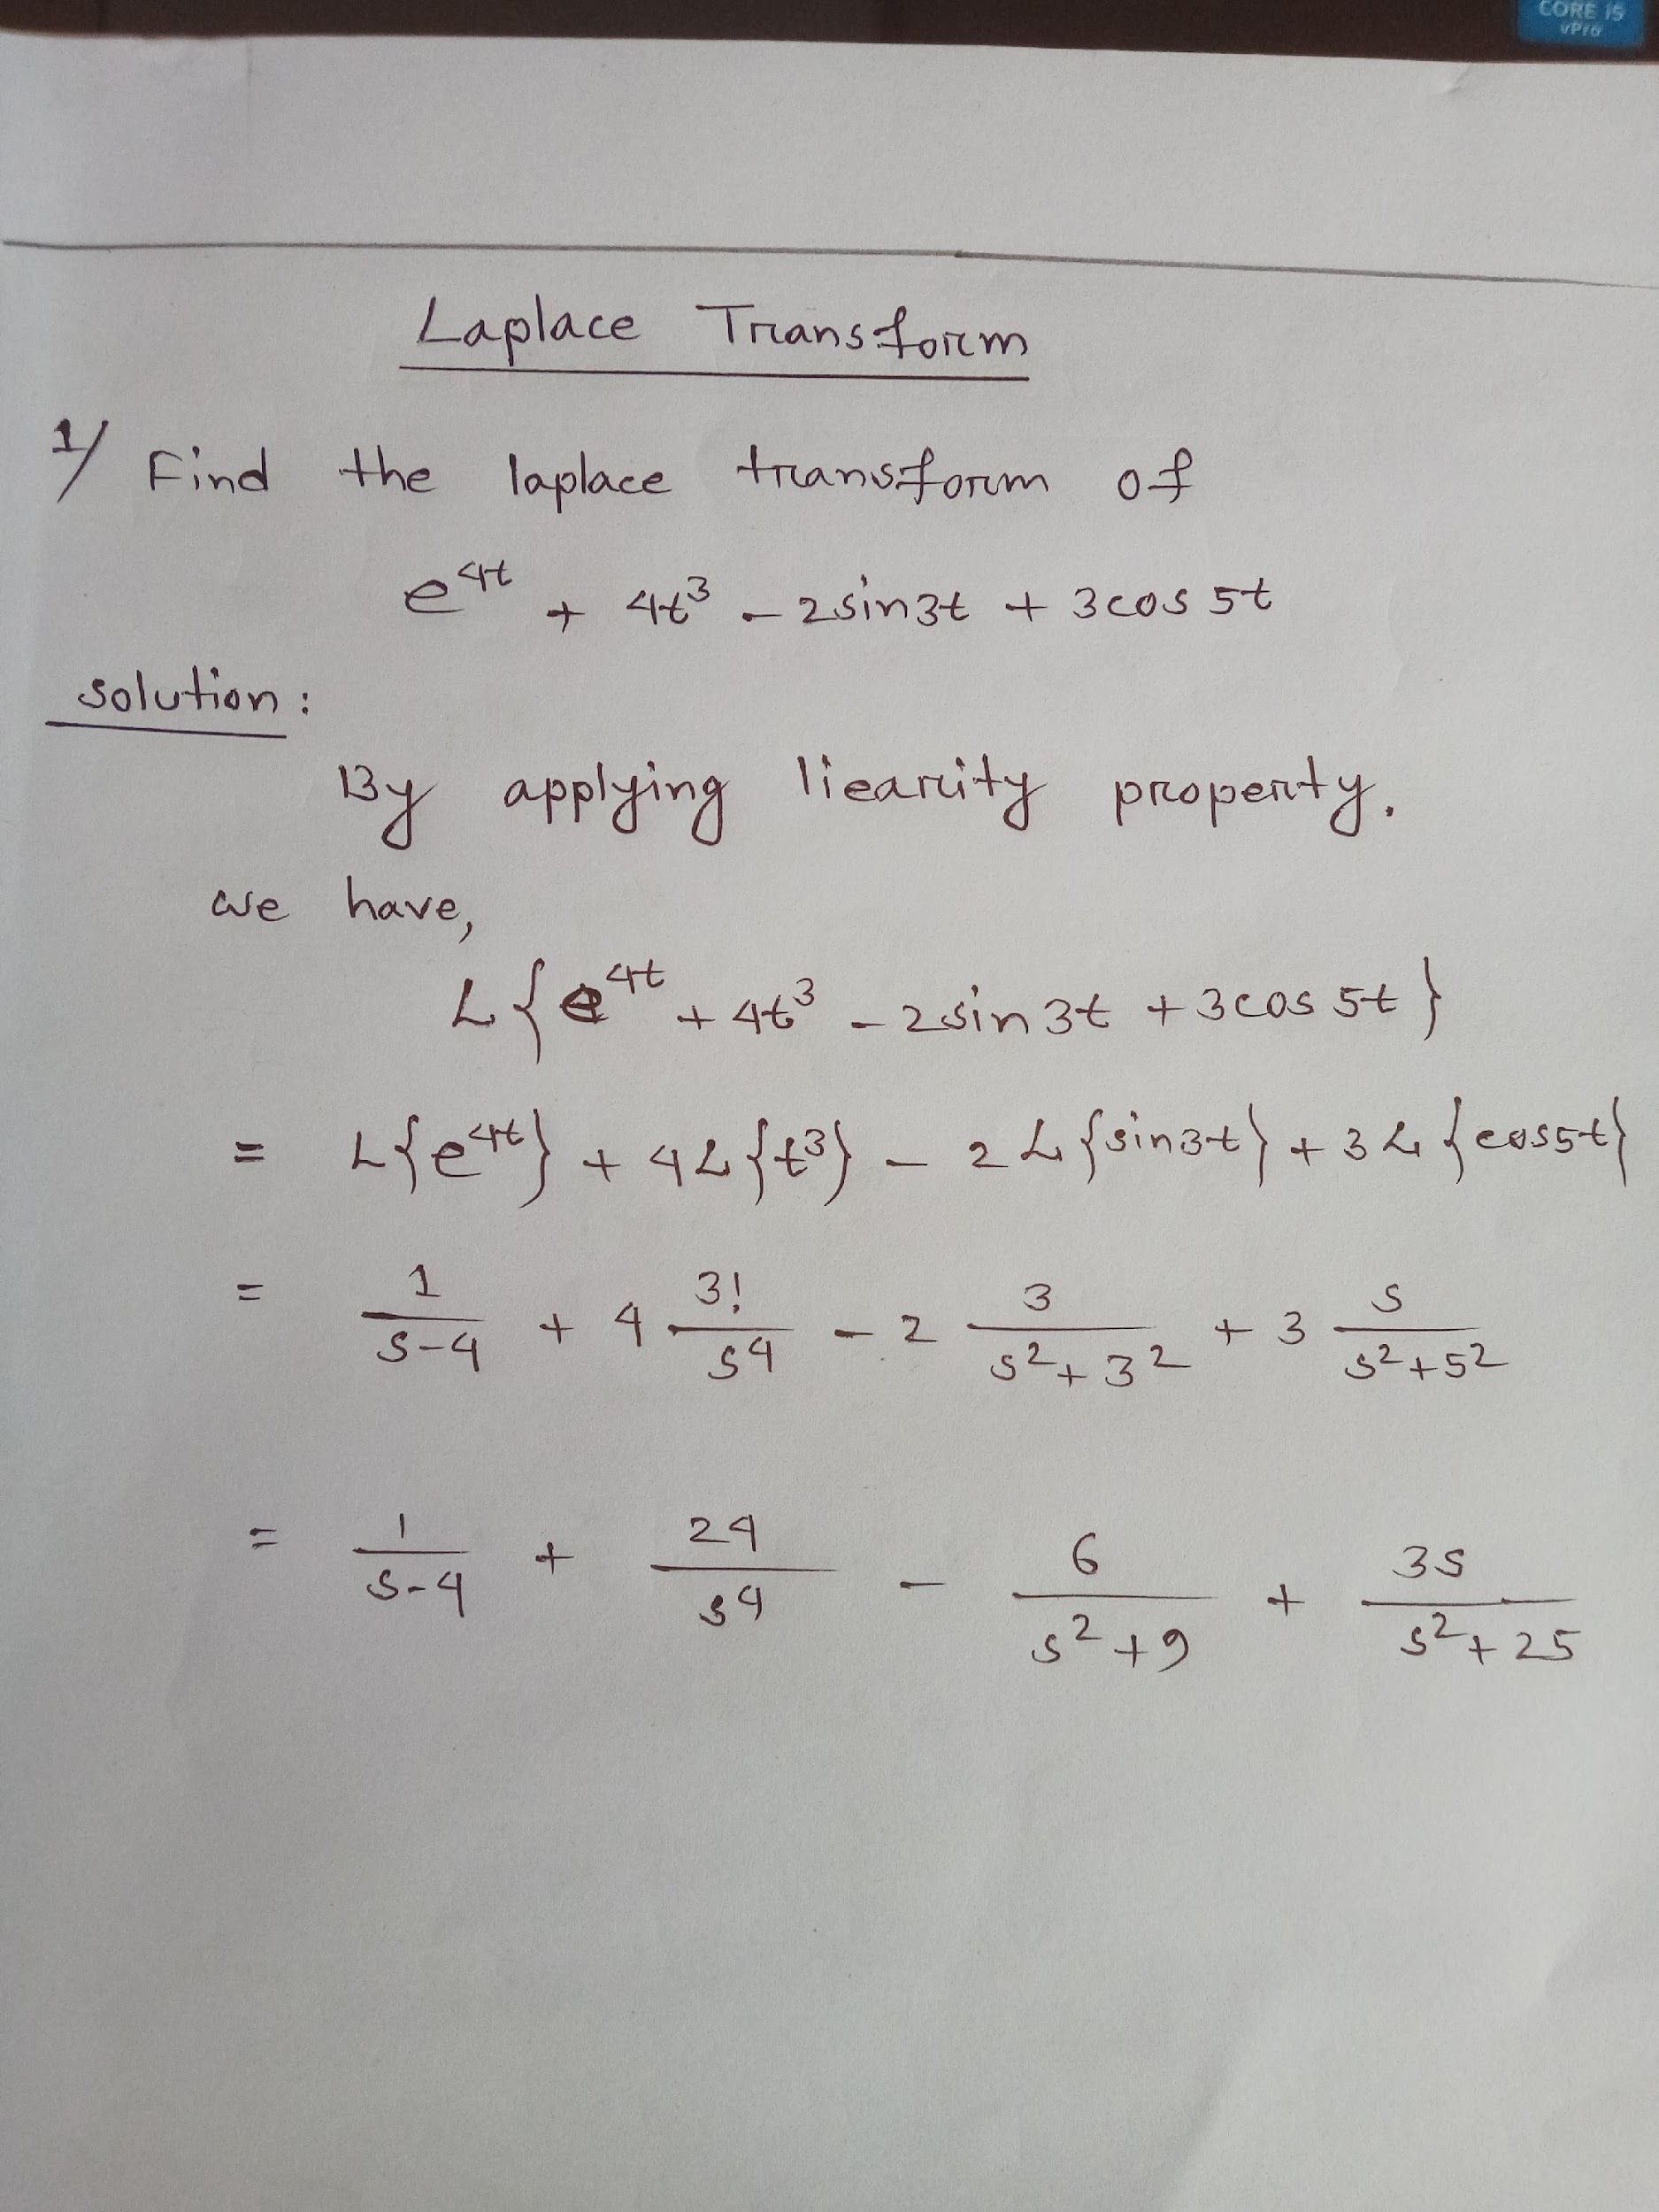 CORE i5
vPro
Laplace Transform
1/ Find the laplace transform of
e^{4t} + 4t^3 - 2sin3t + 3cos 5t
solution:
By applying liearity property.
we have,
L{e^{4t} + 4t^3 - 2sin 3t + 3cos 5t}
= L{e^{4t}} + 4L{t^3} - 2L{sin3t} + 3L{cos5t}
= \frac{1}{s-4} + 4 \frac{3!}{s^4} - 2 \frac{3}{s^2+3^2} + 3 \frac{s}{s^2+5^2}
= \frac{1}{s-4} + \frac{24}{s^4} - \frac{6}{s^2+9} + \frac{3s}{s^2+25}